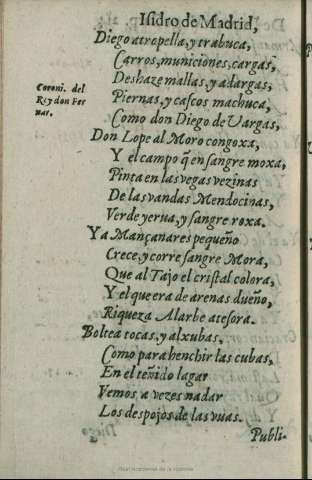 Isidro de Madrid,
Diego atropella, y trabuca,
Carros, municiones, cargas,
Deshaze mallas, y adargas,
Coroni. del
Rey don Fer
nar.
Piernas, y cascos machuca,
Como don Diego de Vargas,
Don Lope al Moro congoxa,
Y el campo q̃ en sangre moxa,
Pinta en las vegas vezinas
De las vandas Mendocinas,
Verde yerua, y sangre roxa.
Ya Mançanares pequeño
Crece, y corre sangre Mora,
Que al Tajo el cristal colora,
Y el que era de arenas dueño,
Riqueza Alarbe atesora.
Boltea tocas, y alxubas,
Como para henchir las cubas,
En el teñido lagar
Vemos, a vezes nadar
Los despojos de las vuas.
Publi-